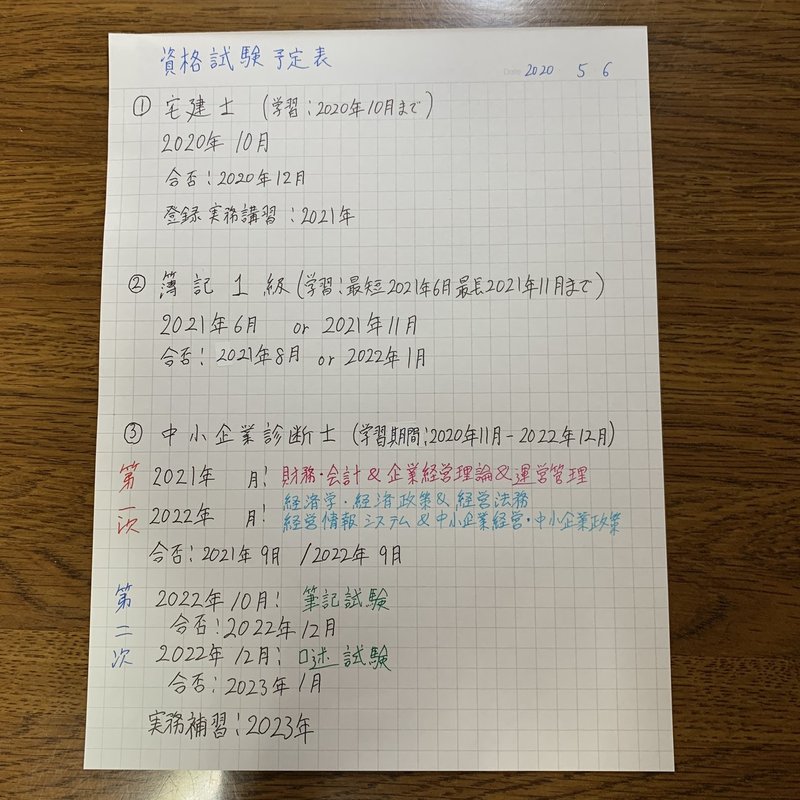 資格試験予定表
Date 2020 5 6
① 宅建士 (学習：2020年10月まで)
2020年 10月
合否：2020年12月
登録実務講習：2021年
② 簿記1級(学習：最短2021年6月 最長2021年11月まで)
2021年6月 or 2021年11月
合否：2021年8月 or 2022年1月
③ 中小企業診断士 (学習期間：2020年11月-2022年12月)
第一次
2021年 月：財務・会計 & 企業経営理論 & 運営管理
2022年 月：経済学・経済政策 & 経営法務
経営情報システム & 中小企業経営・中小企業政策
合否：2021年9月 / 2022年9月
第二次
2022年10月：筆記試験
合否：2022年12月
2022年12月：口述試験
合否：2023年1月
実務補習：2023年